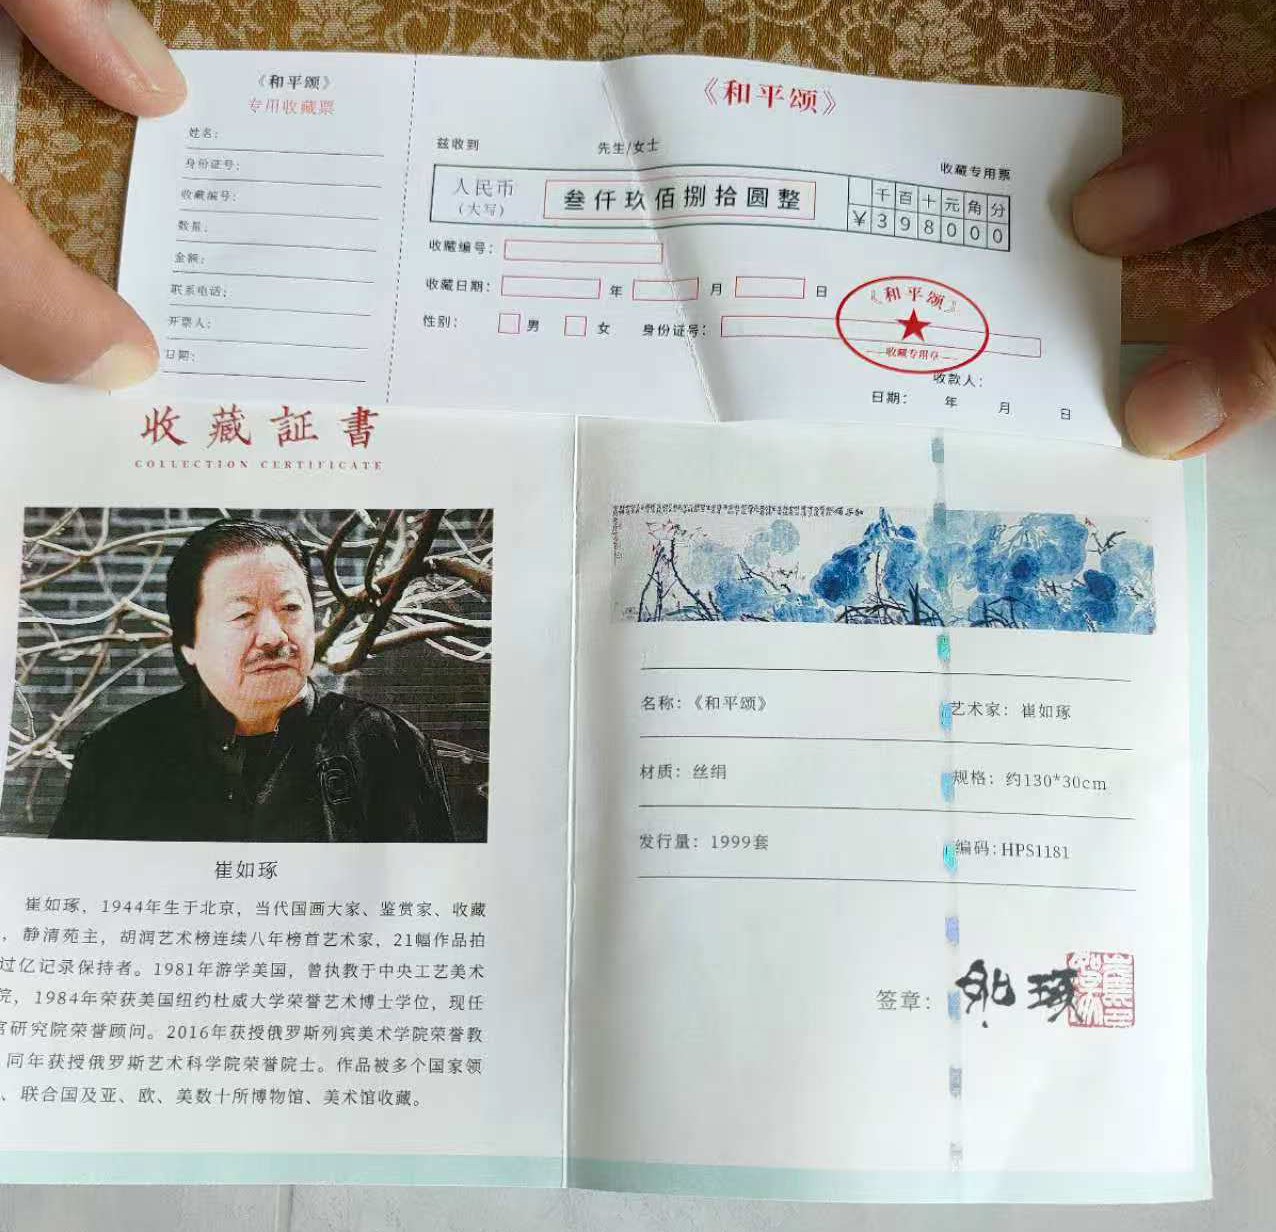 《和平颂》
专用收藏票
姓名：
身份证号：
收藏编号：
数量：
金额：
联系电话：
开票人：
日期：
《和平颂》
兹收到 先生/女士
收藏专用票
人民币
（大写）
叁仟玖佰捌拾圆整
千百十元角分
￥398000
收藏编号：
收藏日期： 年 月 日
性别： 男 女 身份证号：
《和平颂》
收藏专用章
收款人：
日期： 年 月 日
收藏証書
COLLECTION CERTIFICATE
崔如琢
崔如琢，1944年生于北京，当代国画大家、鉴赏家、收藏
，静清苑主，胡润艺术榜连续八年榜首艺术家，21幅作品拍
过亿记录保持者。1981年游学美国，曾执教于中央工艺美术
院，1984年荣获美国纽约杜威大学荣誉艺术博士学位，现任
宫研究院荣誉顾问。2016年获授俄罗斯列宾美术学院荣誉教
同年获授俄罗斯艺术科学院荣誉院士。作品被多个国家领
、联合国及亚、欧、美数十所博物馆、美术馆收藏。
名称：《和平颂》 艺术家：崔如琢
材质：丝绢 规格：约130*30cm
发行量：1999套 编码:HPS1181
签章：